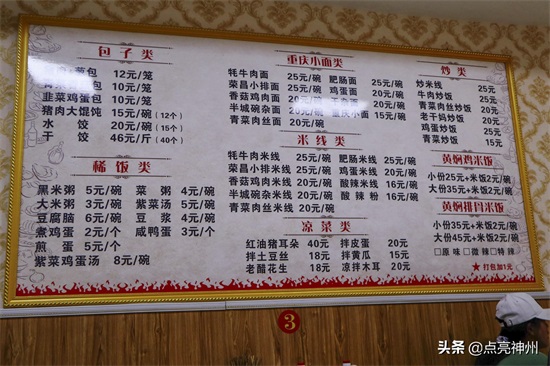 包子类
菜包 12元/笼
包 10元/笼
韭菜鸡蛋包 10元/笼
猪肉大馄饨 15元/碗(12个)
水饺 20元/碗(15个)
干饺 46元/斤(40个)
稀饭类
黑米粥 5元/碗 菜粥 4元/碗
大米粥 3元/碗 紫菜汤 5元/碗
豆腐脑 6元/碗 豆浆 4元/碗
煮鸡蛋 2元/个 咸鸭蛋 3元/个
煎蛋 5元/个
紫菜鸡蛋汤 8元/碗
重庆小面类
牦牛肉面 25元/碗 肥肠面 25元/碗
荣昌小排面 25元/碗 鸡蛋面 20元/碗
香菇鸡肉面 25元/碗 杂面 20元/碗
半城碗杂面 25元/碗 重庆小面 15元/碗
青菜肉丝面 20元/碗
米线类
牦牛肉米线 25元/碗 肥肠米线 25元/碗
荣昌小排米线 25元/碗 鸡蛋米线 20元/碗
香菇鸡肉米线 25元/碗 酸辣米线 16元/碗
半城碗杂米线 25元/碗 酸辣粉 16元/碗
青菜肉丝米线 20元/碗
凉菜类
红油猪耳朵 40元 拌皮蛋 20元
拌土豆丝 18元 拌黄瓜 15元
老醋花生 18元 凉拌木耳 20元
炒类
炒米线 25元
牛肉炒饭 25元
青菜肉丝炒饭 20元
老干妈炒饭 20元
鸡蛋炒饭 20元
青菜炒饭 15元
黄焖鸡米饭
小份25元+米饭2元/碗
大份35元+米饭2元/碗
黄焖排骨米饭
小份35元+米饭2元/碗
大份45元+米饭2元/碗
□原味 □微辣 □特辣
★打包加1元
3
头条 @点亮神州